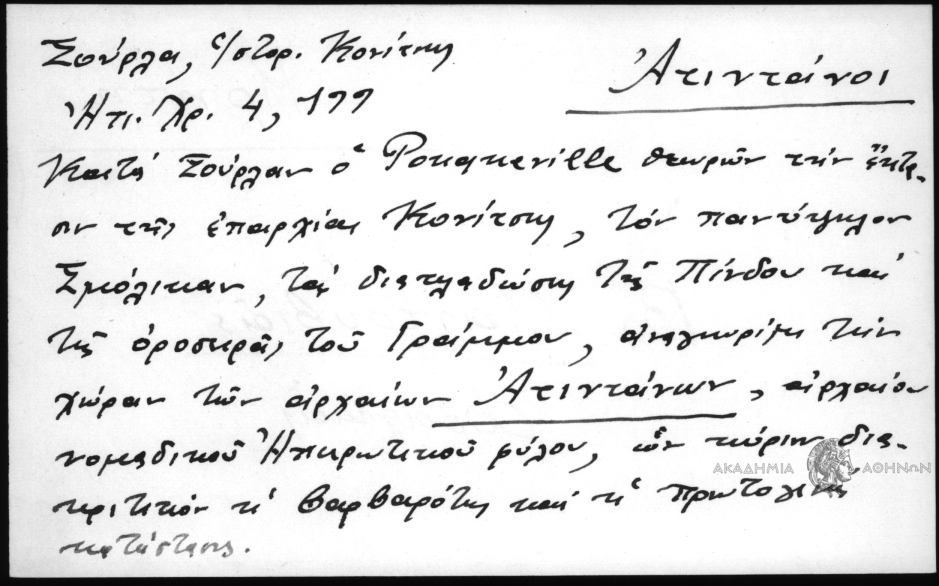 Σούρλα, ἱστορ. Κονίτσης
Ἀτιντᾶνοι
Ἠπ. Χρ. 4, 199
Κατά Σούρλαν ὁ Pouqueville θεωρῶν τήν ἔκτα-
σιν τῆς ἐπαρχίας Κονίτσης, τόν πανύψηλον
Σμόλικαν, τάς διακλαδώσεις τῆς Πίνδου καί
τῆς ὀροσειρᾶς τοῦ Γράμμου, ἀναγνωρίζει τήν
χώραν τῶν ἀρχαίων Ἀτιντάνων, ἀρχαίου
νομαδικοῦ Ἠπειρωτικοῦ φύλου, ὧν κύριον δια-
κριτικόν ἡ βαρβαρότης καί ἡ πρωτόγονος
κατάστασις.
ΑΚΑΔΗΜΙΑ ΑΘΗΝΩΝ